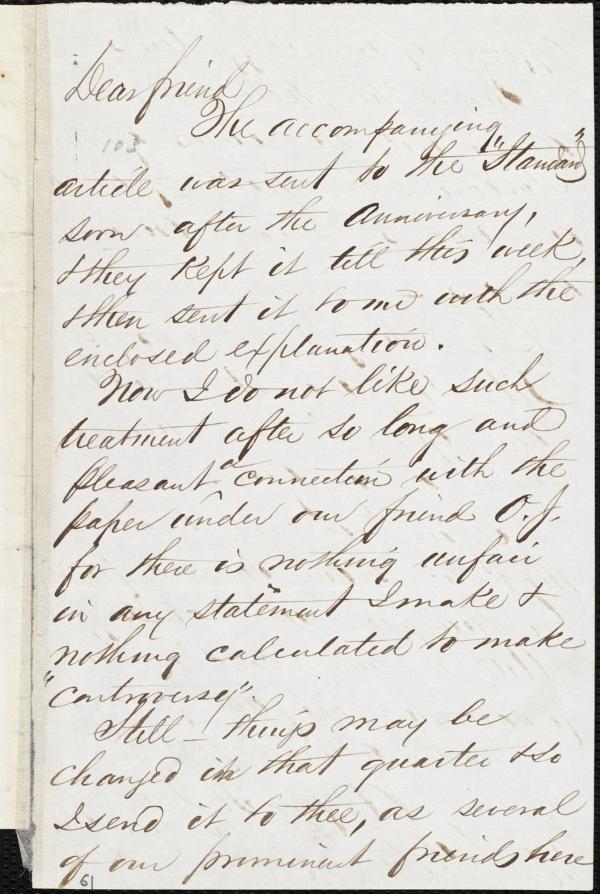 Dear friend
The accompanying
103
article was sent to the "Standard"
soon after the Anniversary,
& they kept it till this week,
& then sent it to me with the
enclosed explanation.
Now I do not like such
treatment after so long and
pleasant a connection with the
paper under our friend O. J.
for there is nothing unfair
in any statement I make &
nothing calculated to make
"controversy".
Still - things may be
changed in that quarter & so
I send it to thee, as several
of our prominent friends here
61